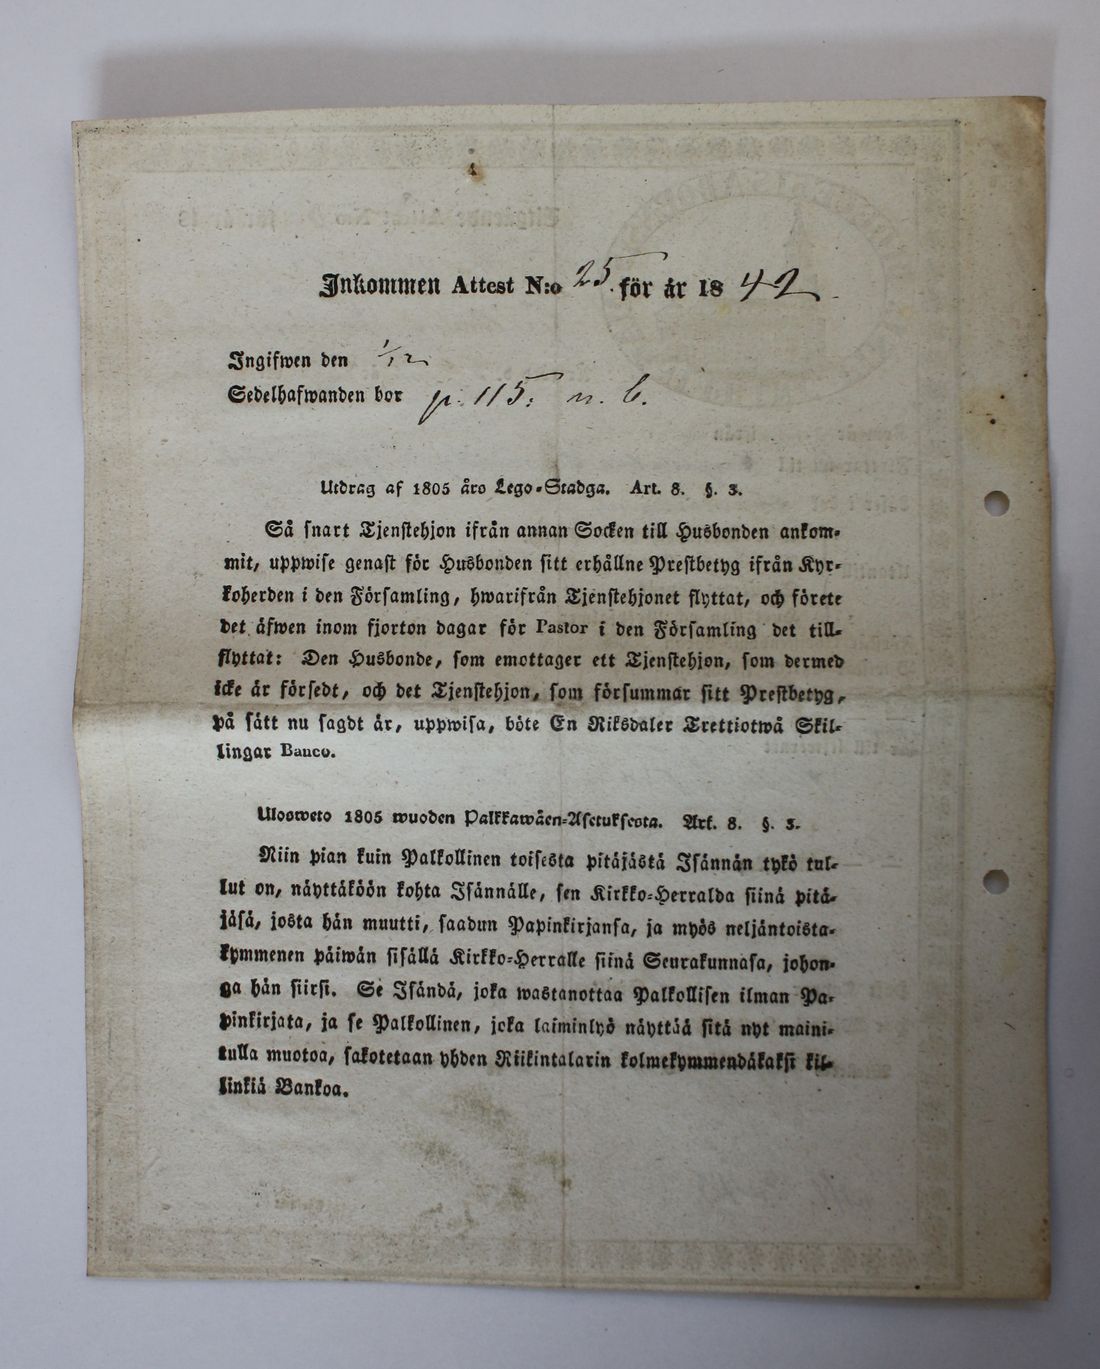 Inkommen Attest N:o 25. för år 1842.
Ingifwen den 1/12
Sedelhafwanden bor p. 115: n. b.
Utdrag af 1805 års Lego-Stadga. Art. 8. §. 3.
Så snart Tjenstehjon ifrån annan Socken till Husbonden ankom-
mit, uppwise genast för Husbonden sitt erhållne Prestbetyg ifrån Kyr-
koherden i den Församling, hwarifrån Tjenstehjonet flyttat, och förete
det äfwen inom fjorton dagar för Pastor i den Församling det till-
flyttat: Den Husbonde, som emottager ett Tjenstehjon, som dermed
icke är försedt, och det Tjenstehjon, som försummar sitt Prestbetyg,
på sätt nu sagdt är, uppwisa, böte En Riksdaler Trettiotwå Skil-
lingar Banco.
Ulosweto 1805 wuoden Palkkawäen-Asetuksesta. Art. 8. §. 3.
Niin pian kuin Palkollinen toisesta pitäjästä Isännän tykö tul-
lut on, näyttäköön kohta Isännälle, sen Kirkko-Herralda siinä pitä-
jäsä, josta hän muutti, saadun Papinkirjansa, ja myös neljäntoista-
kymmenen päiwän sisällä Kirkko-Herralle siinä Seurakunnasa, johon-
ga hän siirsi. Se Isändä, joka wastanottaa Palkollisen ilman Pa-
pinkirjata, ja se Palkollinen, joka laiminlyö näyttää sitä nyt maini-
tulla muotoa, sakotetaan yhden Riikintalarin kolmekymmendäkaksi kil-
linkiä Bankoa.